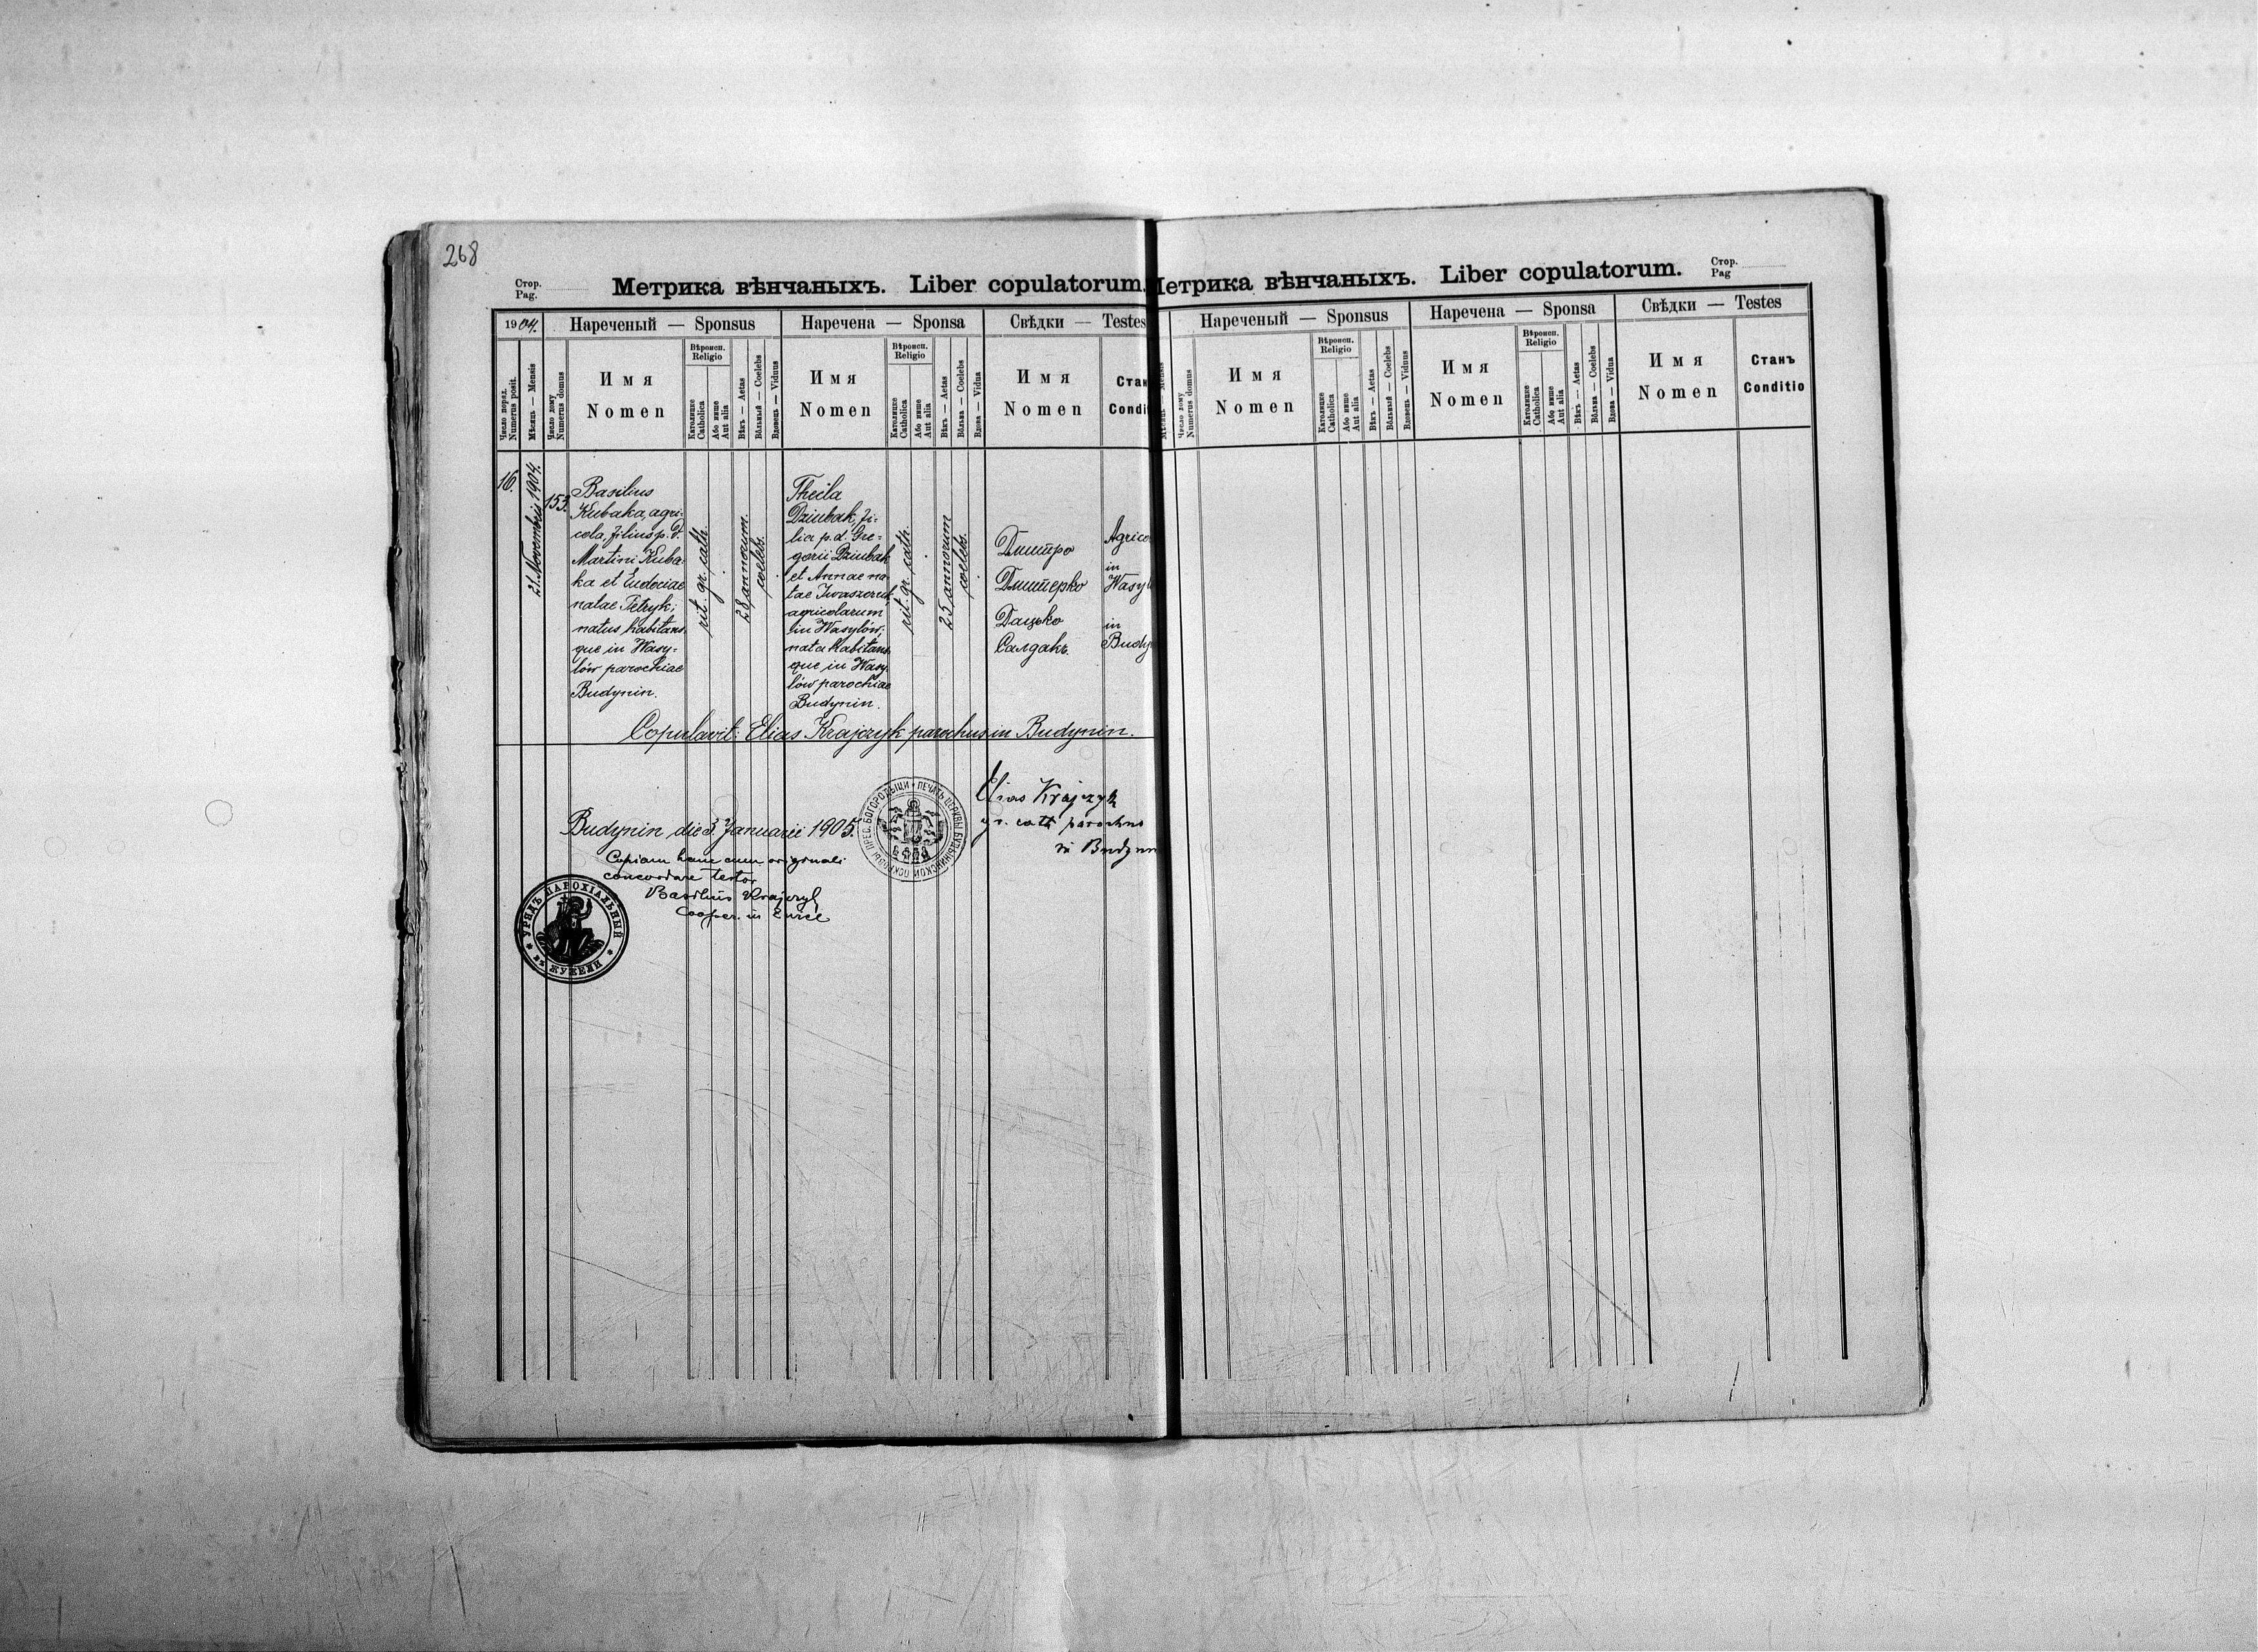 268
Стор.
Pag.
Метрика вѣнчаныхъ. Liber copulatorum.
1904.
Нареченый — Sponsus
Наречена — Sponsa
Свѣдки — Testes
Число поряд.
Numerus posit.
Мѣсяць — Mensis
Число дому
Numerus domus
Имя
Nomen
Вѣроисп.
Religio
Католицке
Catholica
Або инше
Aut alia
Вѣкъ — Aetas
Вôльный — Coelebs
Вдовець — Viduus
Имя
Nomen
Вѣроисп.
Religio
Католицке
Catholica
Або инше
Aut alia
Вѣкъ — Aetas
Вôльна — Coelebs
Вдова — Vidua
Имя
Nomen
Стан
Condi
16.
21. Novembris 1904.
153.
Basilius
Kubaka, agri-
cola, filius p. d.
Martini Kuba-
ka et Eudociae
natae Petryk;
natus habitans-
que in Wasy-
lów parochiae
Budynin.
rit. gr. cath.
28 annorum.
coelebs.
Thecla
Dziubak, fi-
lia p. d. Gre-
gorii Dziubak
et Annae na-
tae Iwaszczuk,
agricolarum
in Wasylów;
nata habitans-
que in Wasy-
lów parochiae
Budynin.
rit. gr. cath.
25 annorum
coelebs.
Дмитро
Дмитерко
Дацько
Салдакъ.
Agrico
in
Wasyl
in
Budy
Copulavit: Elias Krajczyk parochus in Budynin.
Budynin die 3. Januarii 1905.
ПЕЧАТЬ ЦЕРКВЫ БУДЫНИНСКОЙ ПОКРОВЫ ПРЕС. БОГОРОДЫЦИ
Elias Krajczyk
gr. cath parochus
in Budynin
Copiam hanc cum originali
concordare testor
Basilius Krajczyk
Cooper. in Żużel
УРЯДЪ ПАРОХІАЛЬНЫЙ
въ ЖУЖЕЛИ
Метрика вѣнчаныхъ. Liber copulatorum.
Стор.
Pag
Нареченый — Sponsus
Наречена — Sponsa
Свѣдки — Testes
Мѣсяць — Mensis
Число дому
Numerus domus
Имя
Nomen
Вѣроисп.
Religio
Католицке
Catholica
Або инше
Aut alia
Вѣкъ — Aetas
Вôльный — Coelebs
Вдовець — Viduus
Имя
Nomen
Вѣроисп.
Religio
Католицке
Catholica
Або инше
Aut alia
Вѣкъ — Aetas
Вôльна — Coelebs
Вдова — Vidua
Имя
Nomen
Станъ
Conditio